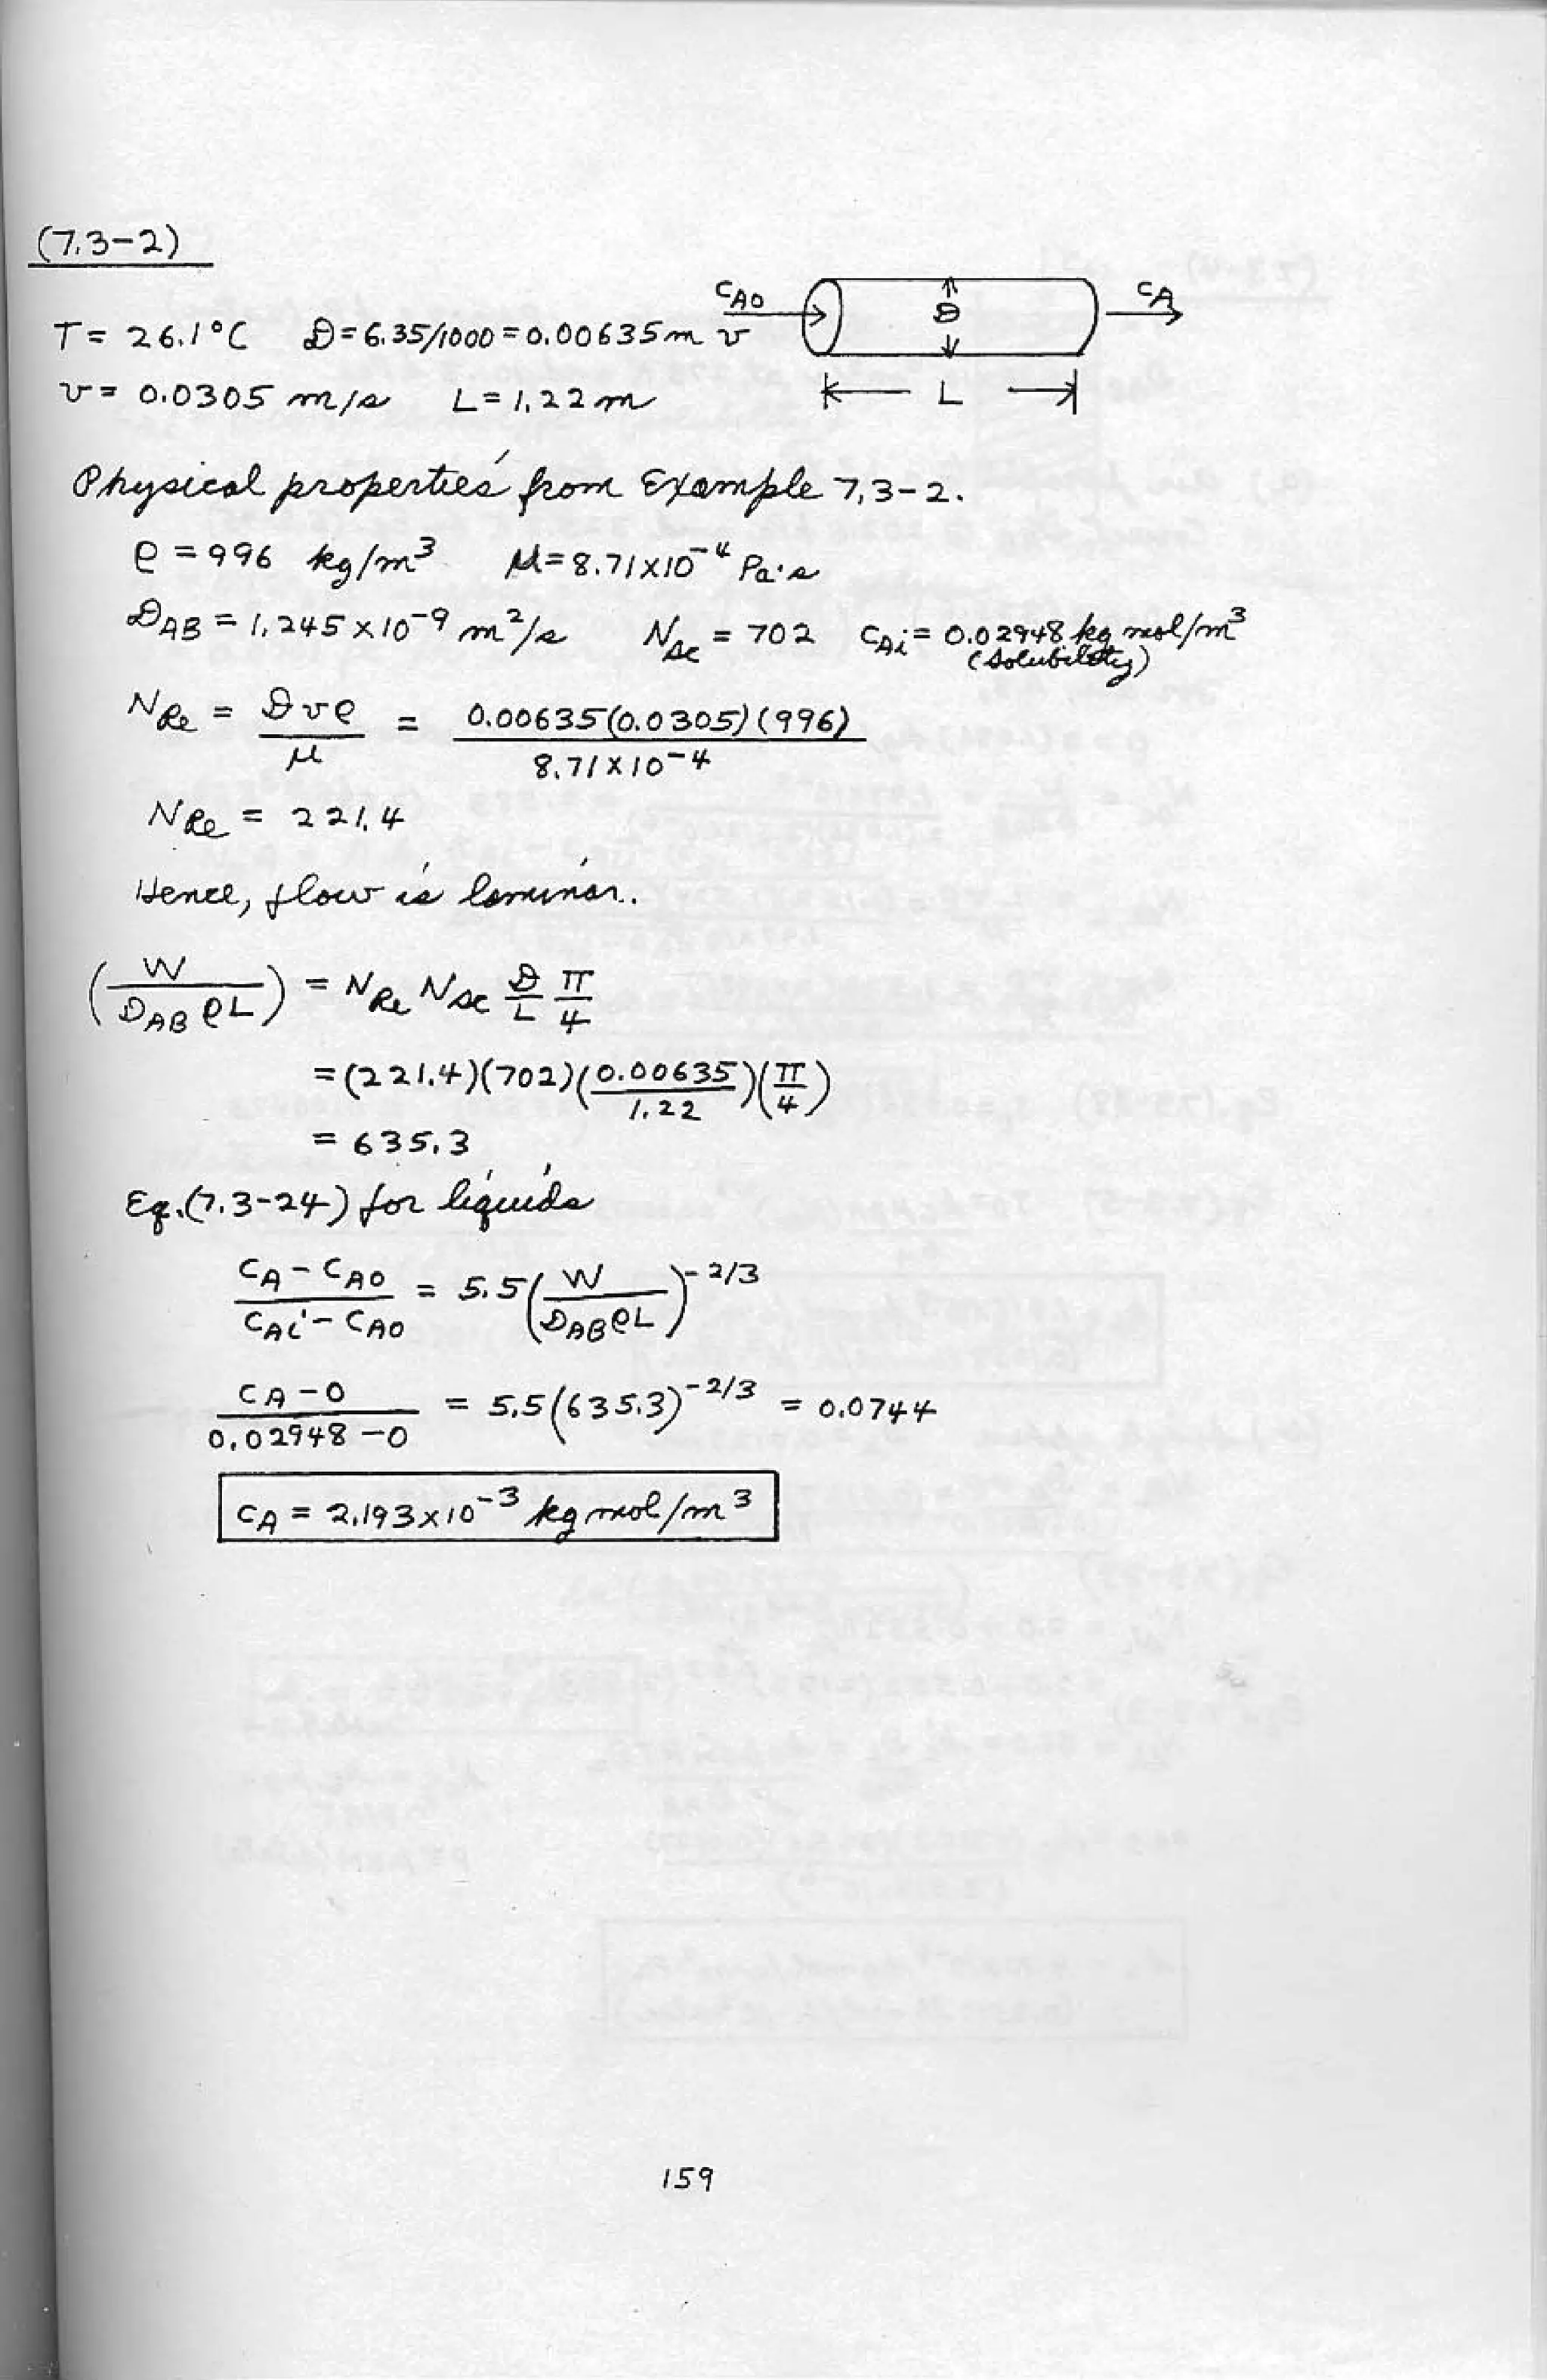 (7.3-2)
T = 26.1°C D = 6.35/1000 = 0.00635 m
v = 0.0305 m/s L = 1.22 m
cA0 v D cA
L
Physical properties from Example 7.3-2.
ρ = 996 kg/m³ μ = 8.71×10⁻⁴ Pa·s
DAB = 1.245×10⁻⁹ m²/s NSc = 702 cAi = 0.02948 kg mol/m³
(solubility)
NRe = Dvρ/μ = 0.00635(0.0305)(996)/8.71×10⁻⁴
NRe = 221.4
Hence, flow is laminar.
(W/DABρL) = NRe NSc D/L π/4
= (221.4)(702)(0.00635/1.22)(π/4)
= 635.3
Eq.(7.3-24) for liquids
cA - cA0/cAi - cA0 = 5.5(W/DABρL)⁻²/³
cA - 0/0.02948 - 0 = 5.5(635.3)⁻²/³ = 0.0744
cA = 2.193×10⁻³ kg mol/m³
159